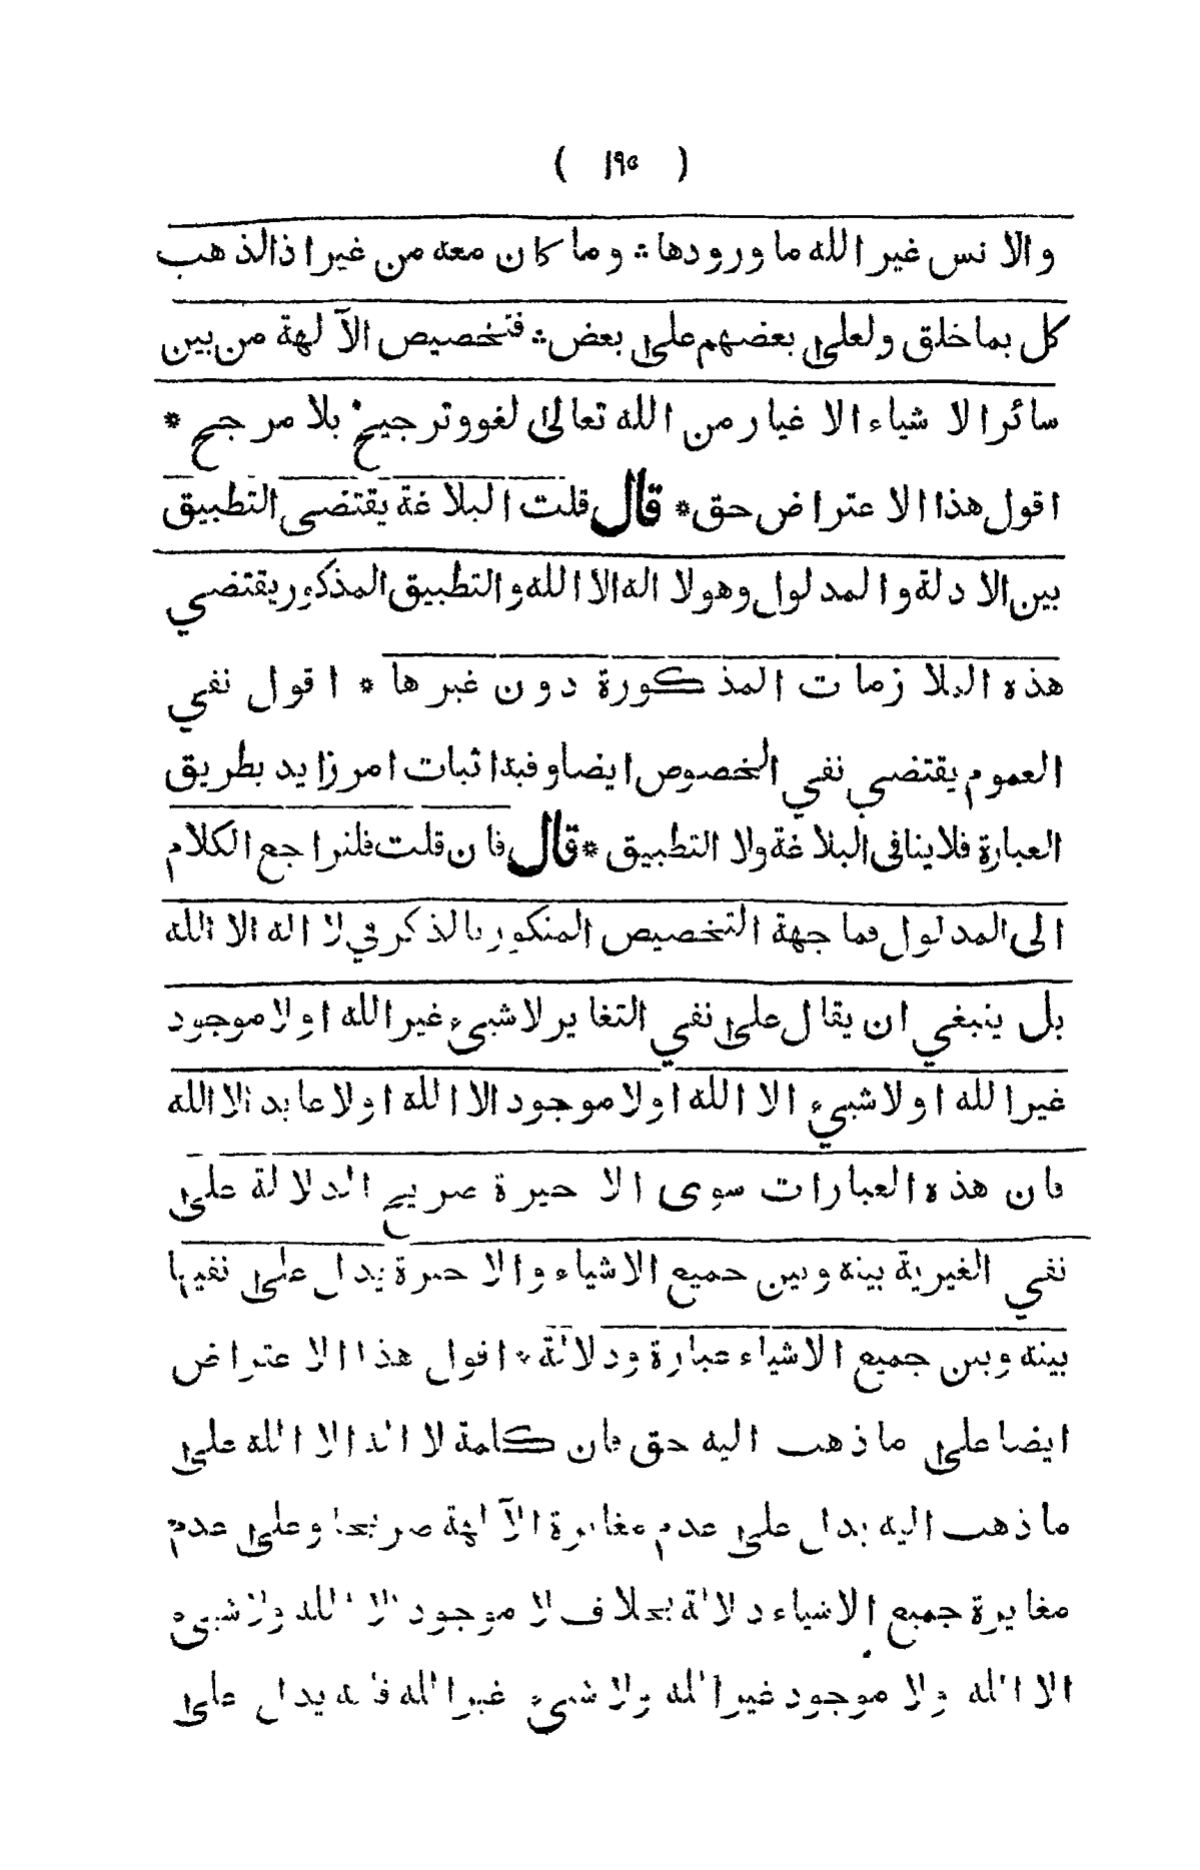 ( ١٩٥ )
والانس غير الله ما وردوها ؞ وما كان معه من غير اذا لذهب
كل بما خلق ولعلى بعضهم على بعض ؞ فتخصيص الآلهة من بين
سائر الاشياء الاغيار من الله تعالى لغو وترجيح بلا مرجح *
اقول هذا الاعتراض حق * قال قلت البلاغة يقتضى التطبيق
بين الادلة والمدلول وهو لا اله الا الله والتطبيق المذكور يقتضي
هذه البلازمات المذكورة دون غيرها * اقول نفي
العموم يقتضي نفي الخصوص ايضا وفيه اثبات امر زايد بطريق
العبارة فلا ينافى البلاغة ولا التطبيق * قال فان قلت فلنراجع الكلام
الى المدلول فما جهة التخصيص المنكور بالذكر في لا اله الا الله
بل ينبغي ان يقال على نفي التغاير لا شيء غير الله او لا موجود
غير الله او لا شيء الا الله او لا موجود الا الله او لا عابد الا الله
فان هذه العبارات سوى الاخيرة صريح الدلالة على
نفي الغيرية بينه وبين جميع الاشياء والاخيرة يدل على نفيها
بينه وبين جميع الاشياء عبارة ودلالة * اقول هذا الاعتراض
ايضا على ما ذهب اليه حق فان كلمة لا اله الا الله على
ما ذهب اليه يدل على عدم مغايرة الآلهة صريحا وعلى عدم
مغايرة جميع الاشياء دلالة بخلاف لا موجود الا الله ولا شيء
الا الله ولا موجود غير الله ولا شيء غير الله فانه يدل على